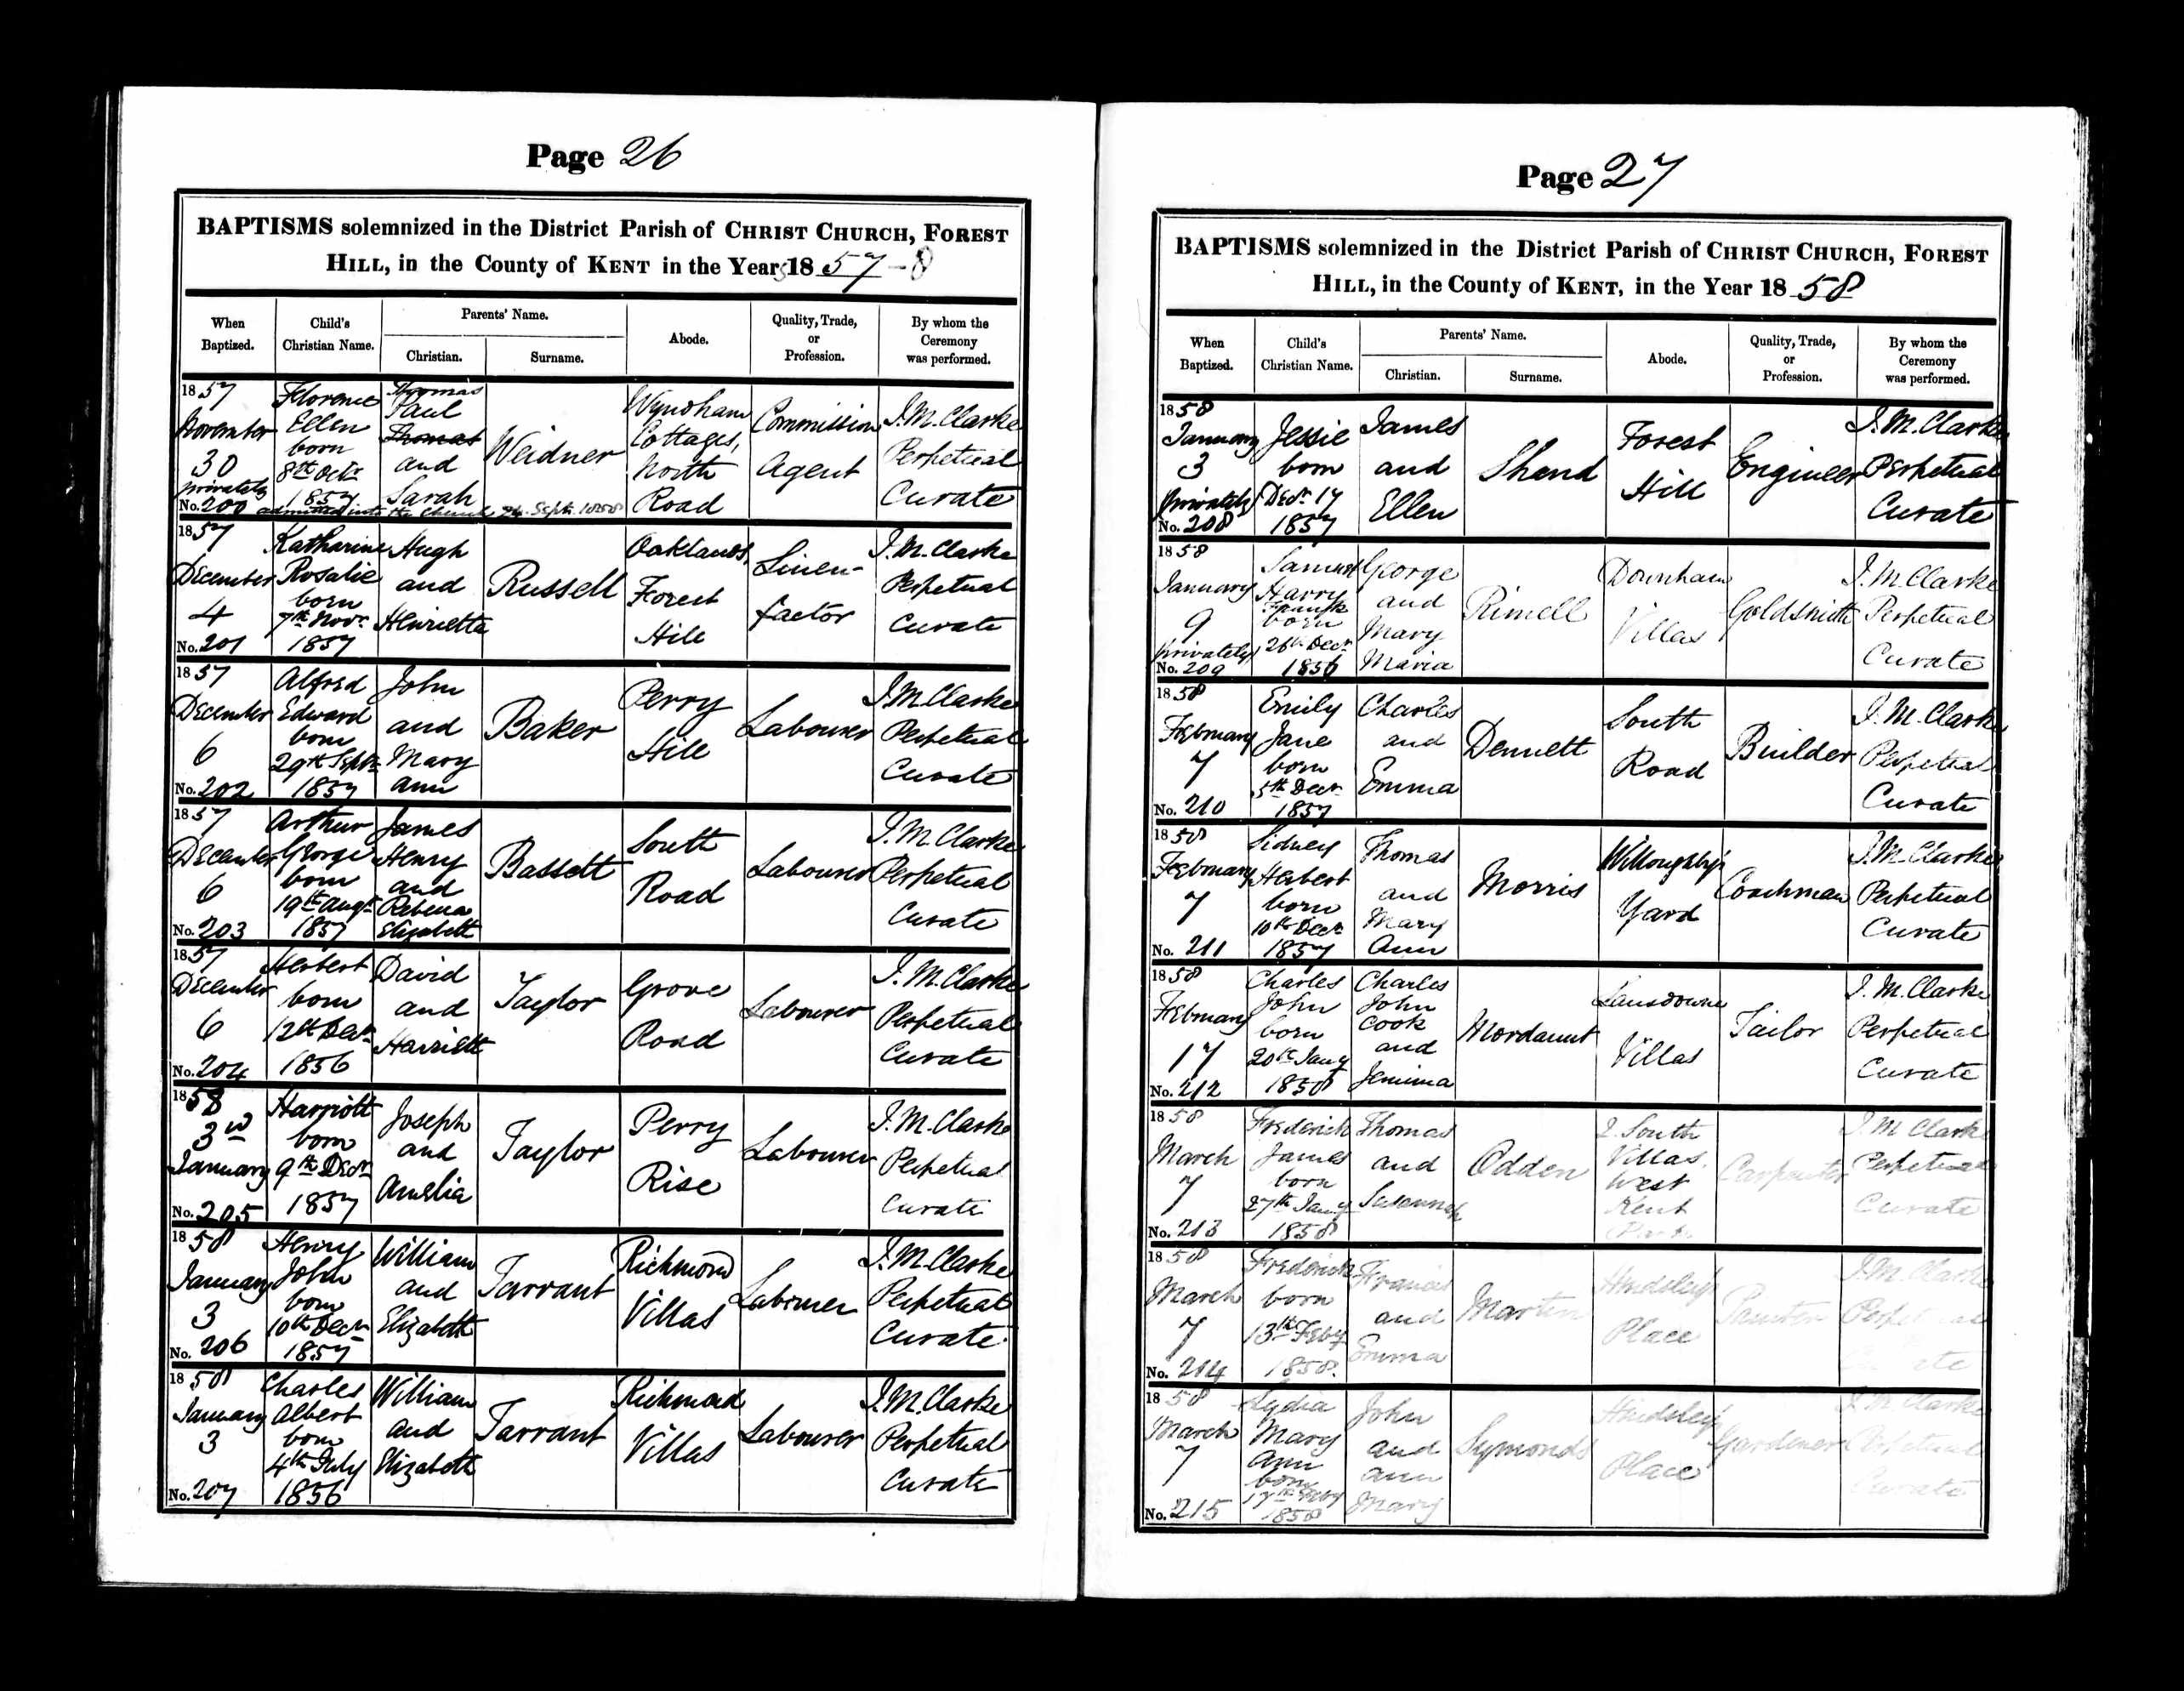 Page 26
BAPTISMS solemnized in the District Parish of CHRIST CHURCH, FOREST
HILL, in the County of KENT in the Years 1857-8
When Baptized.
Child's Christian Name.
Parents' Name.
Christian.
Surname.
Abode.
Quality, Trade, or Profession.
By whom the Ceremony was performed.
1857 November 30 privately No. 200
Florence Ellen born 8th Octr 1857
Thomas Paul Thomas and Sarah
Weidner
Wyndham Cottages, North Road
Commission Agent
J. M. Clarke Perpetual Curate
admitted into the Church 24 Septr 1858
1857 December 4 No. 201
Katharine Rosalie born 7th Novr 1857
Hugh and Henrietta
Russell
Oaklands, Forest Hill
Linen-factor
J. M. Clarke Perpetual Curate
1857 December 6 No. 202
Alfred Edward born 29th Septr 1857
John and Mary Ann
Baker
Perry Hill
Labourer
J. M. Clarke Perpetual Curate
1857 December 6 No. 203
Arthur George born 19th Augt 1857
James Henry and Rebecca Elizabeth
Bassett
South Road
Labourer
J. M. Clarke Perpetual Curate
1857 December 6 No. 204
Herbert born 12th Decr 1856
David and Harriett
Taylor
Grove Road
Labourer
J. M. Clarke Perpetual Curate
1858 3rd January No. 205
Harriott born 9th Decr 1857
Joseph and Amelia
Taylor
Perry Rise
Labourer
J. M. Clarke Perpetual Curate
1858 January 3 No. 206
Henry John born 10th Decr 1857
William and Elizabeth
Tarrant
Richmond Villas
Labourer
J. M. Clarke Perpetual Curate
1858 January 3 No. 207
Charles Albert born 4th July 1856
William and Elizabeth
Tarrant
Richmond Villas
Labourer
J. M. Clarke Perpetual Curate
Page 27
BAPTISMS solemnized in the District Parish of CHRIST CHURCH, FOREST
HILL, in the County of KENT, in the Year 1858
When Baptized.
Child's Christian Name.
Parents' Name.
Christian.
Surname.
Abode.
Quality, Trade, or Profession.
By whom the Ceremony was performed.
1858 January 3 privately No. 208
Jessie born Decr 17 1857
James and Ellen
Shand
Forest Hill
Engineer
J. M. Clarke Perpetual Curate
1858 January 9 privately No. 209
Samuel Harry Frank born 26th Decr 1856
George and Mary Maria
Rimell
Downham Villas
Goldsmith
J. M. Clarke Perpetual Curate
1858 February 7 No. 210
Emily Jane born 5th Decr 1857
Charles and Emma
Dennett
South Road
Builder
J. M. Clarke Perpetual Curate
1858 February 7 No. 211
Sidney Herbert born 10th Decr 1857
Thomas and Mary Ann
Morris
Willoughby's Yard
Coachman
J. M. Clarke Perpetual Curate
1858 February 17 No. 212
Charles John born 20th Jany 1858
Charles John Cook and Jemima
Mordaunt
Lansdowne Villas
Tailor
J. M. Clarke Perpetual Curate
1858 March 7 No. 213
Frederick James born 27th Jany 1858
Thomas and Susannah
Odden
2 South Villas, West Kent Park
Carpenter
J. M. Clarke Perpetual Curate
1858 March 7 No. 214
Frederick born 13th Feby 1858.
Francis and Emma
Martin
Hindsley's Place
Painter
J. M. Clarke Perpetual Curate
1858 March 7 No. 215
Lydia Mary Ann born 17th Feby 1858
John and Ann Mary
Symonds
Hindsley's Place
Gardener
J. M. Clarke Perpetual Curate